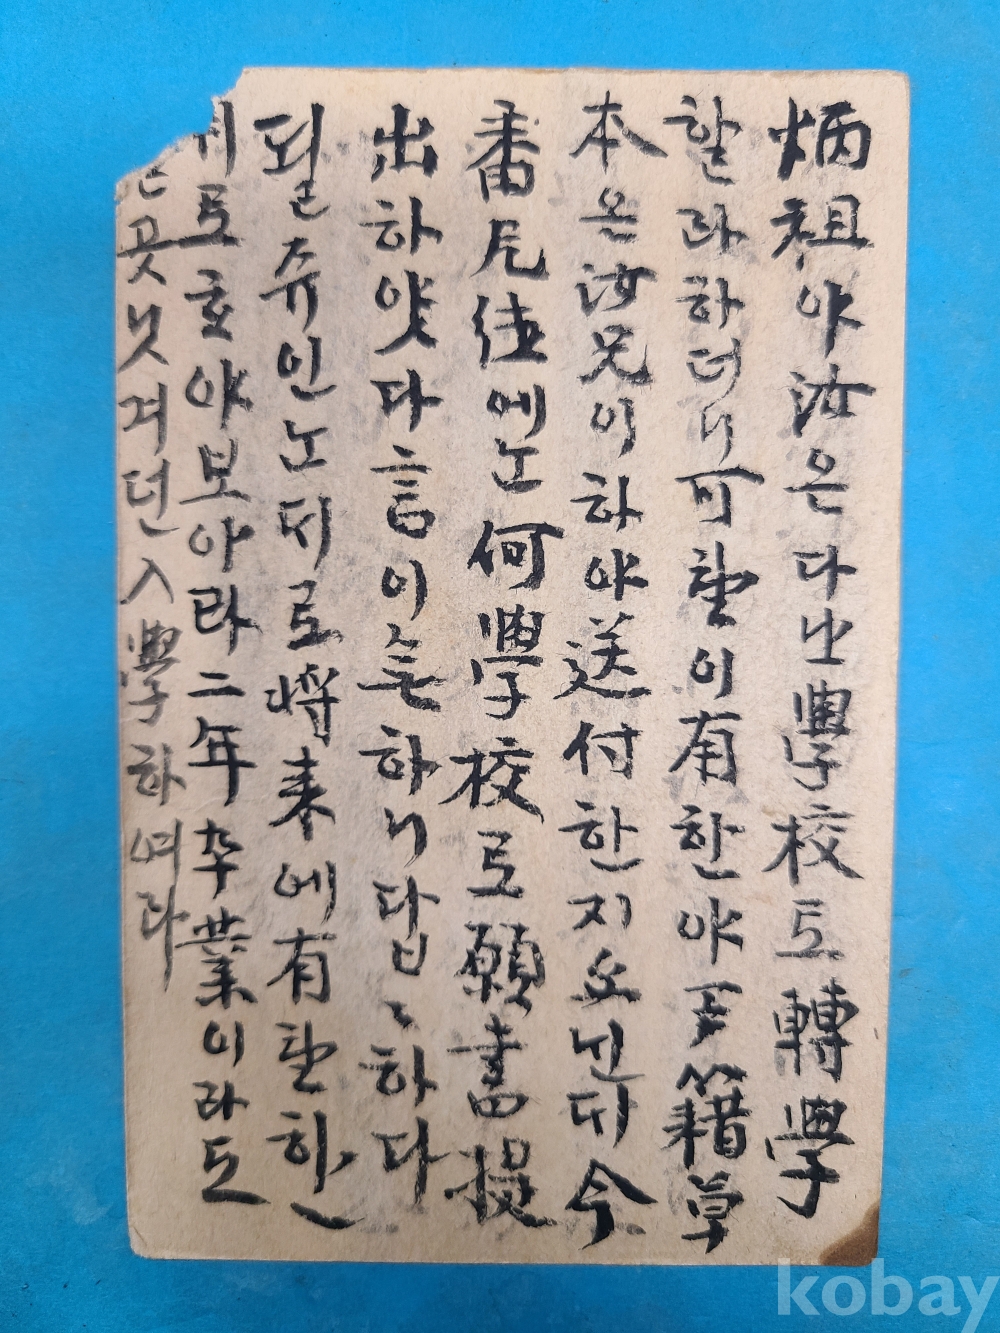 炳祖야 汝은 다른 學校로 轉學
할라하더니 可望이 有한야 戶籍草
本은 汝兄이 하야 送付한지요 넌대 今
番 하엿에는 何學校로 願書 提
出하얏다 言이 하니 답〻하다
될 쥬인는 되로 將來에 有望한
로 호야 보아라 二年 卒業이라도
곳 잇거던 入學하여라
kobay